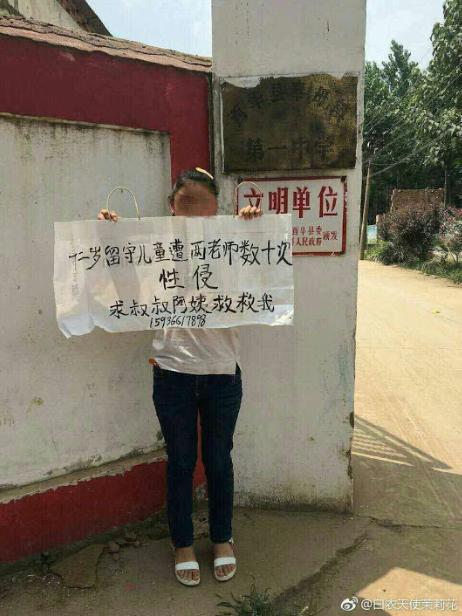 第一中学
文明单位
十二岁留守儿童遭两老师数十次
性侵
求叔叔阿姨救救我
15936617898
@白衣天使茉莉花